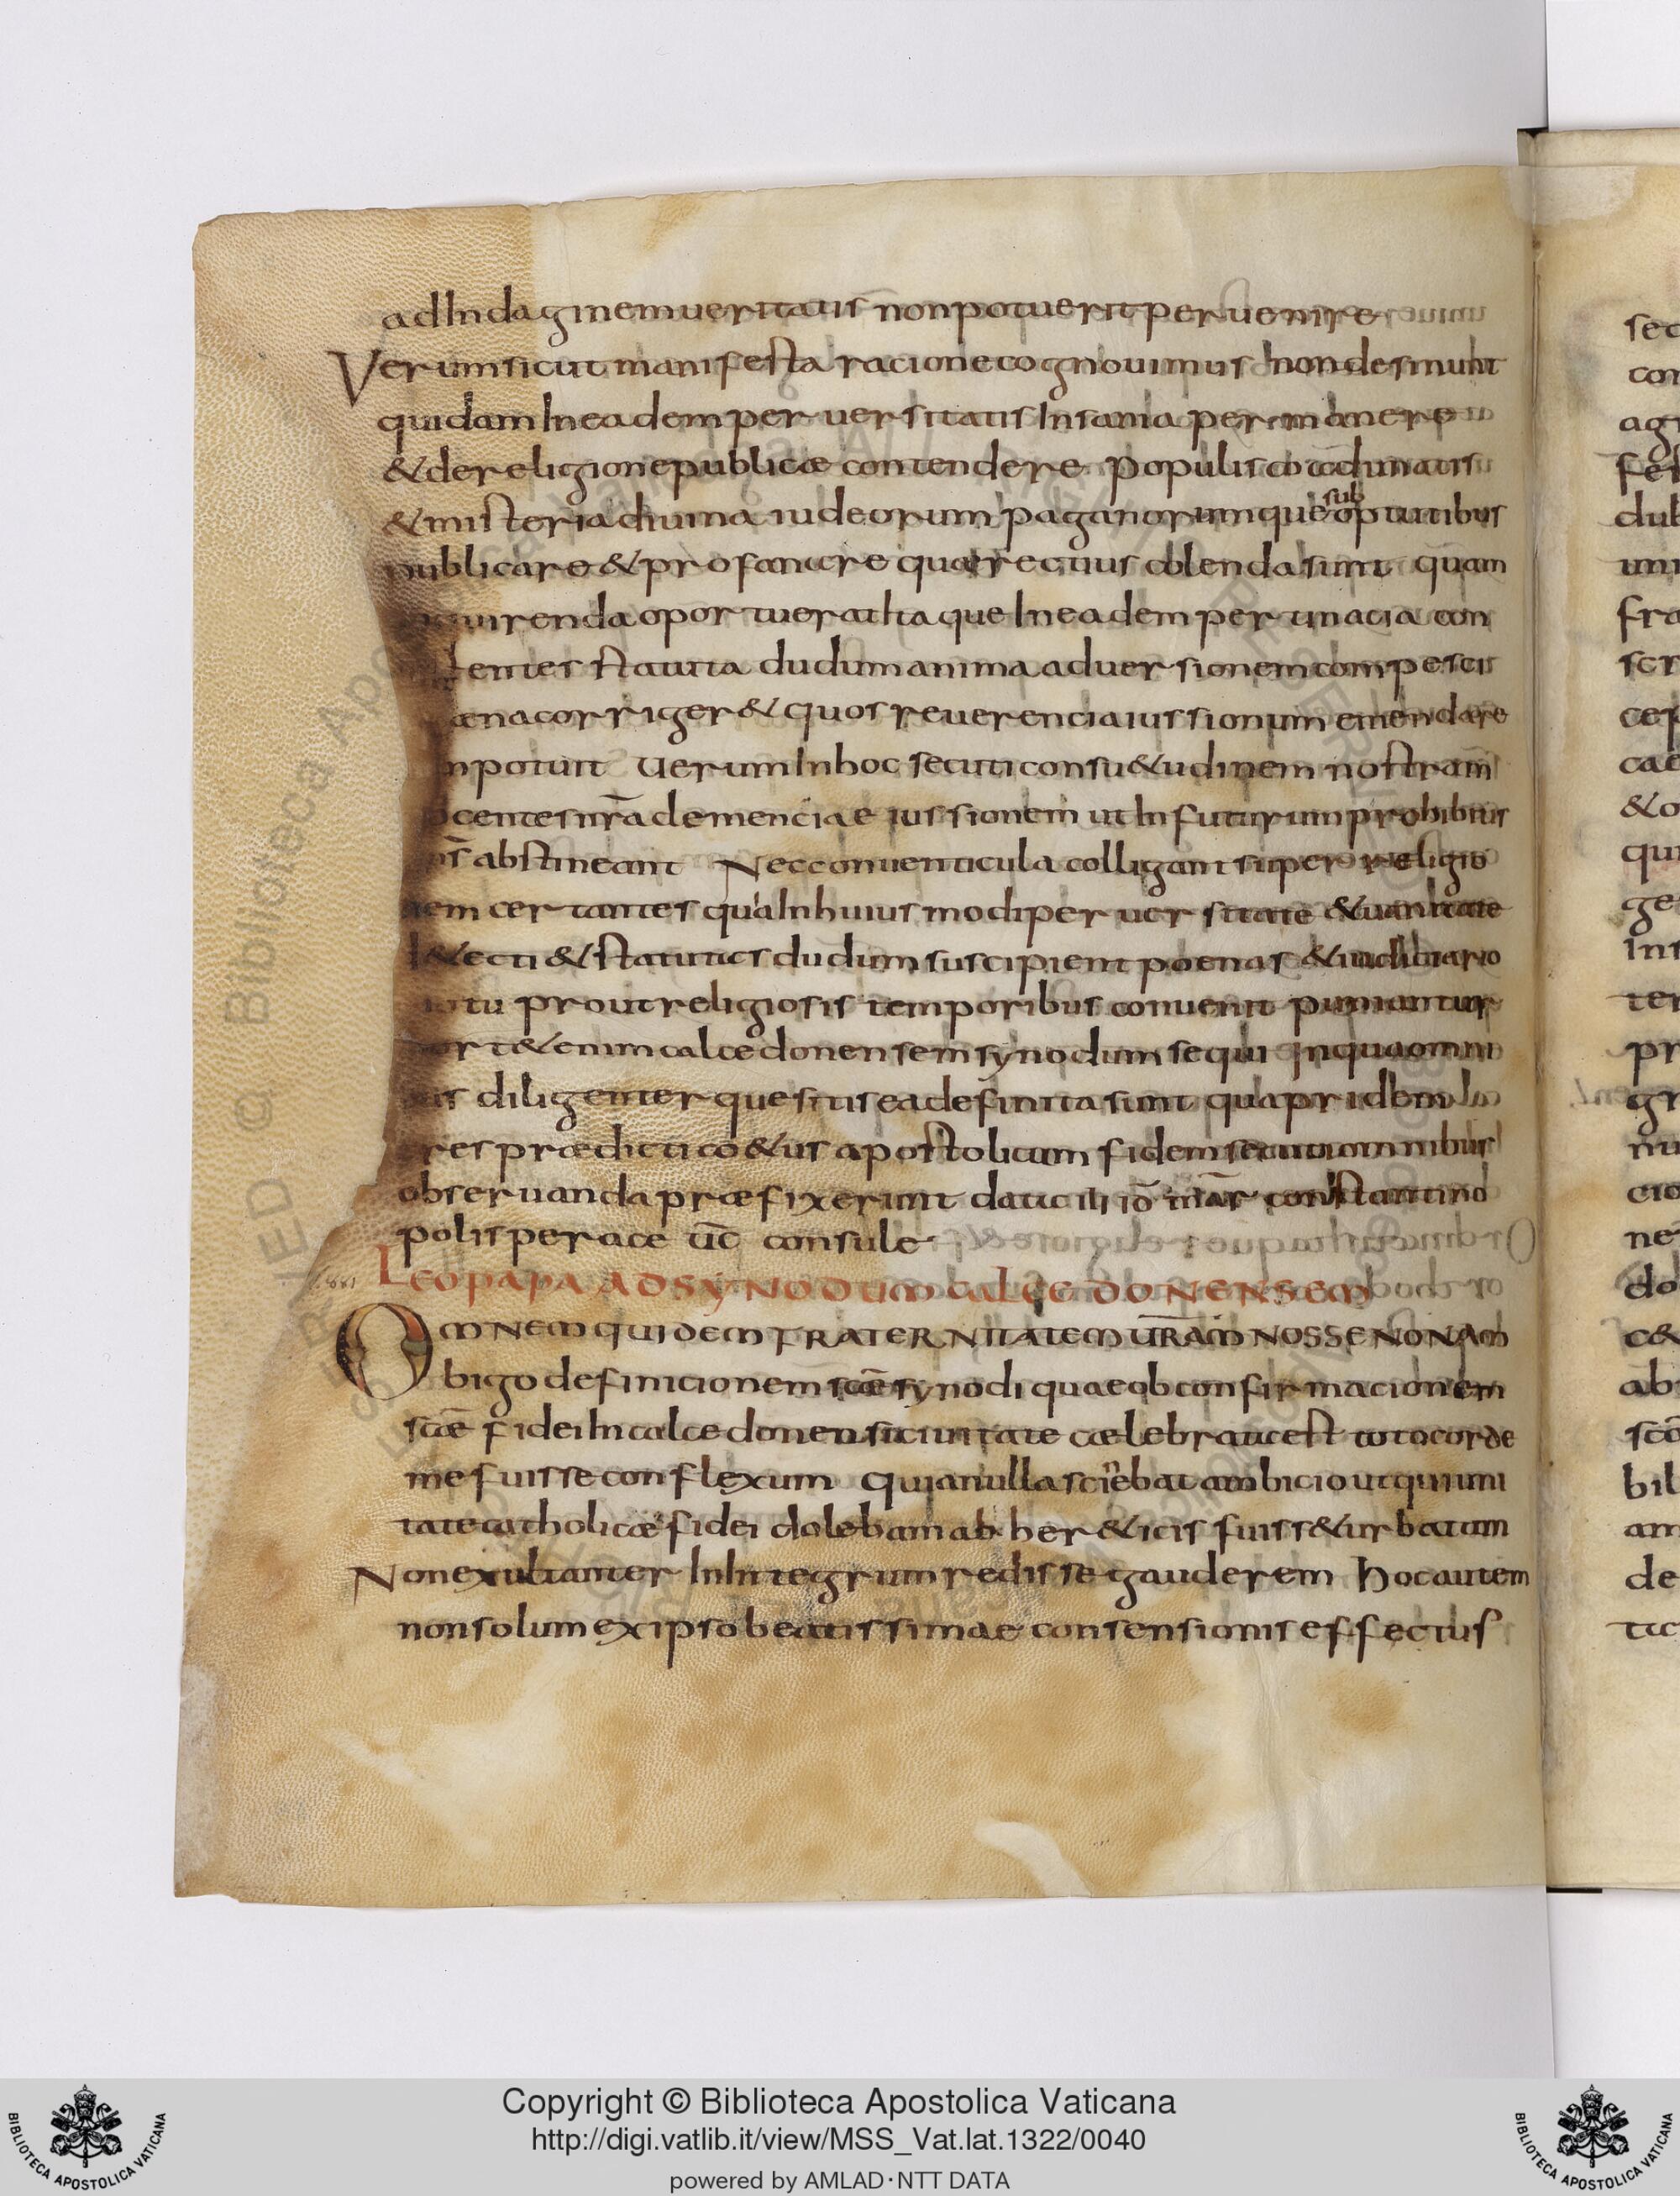 ad Indaginem ueritatis non potuerit peruenire
Verum sicut manifesta racione cognouimus non desinunt
quidam In eadem peruersitatis Insania permanere
& de religione publicæ contendere populis coadunatis
& misteria diuina iudeorum paganorumque sub optutibus
publicare & profanare quae rectius colenda sunt quam
quirenda oportuerat Itaque In eadem pertinacia con
tentes statuta dudum anima aduersionem compescit
pœna corriger& quos reuerencia iussionum emendare
n potuit Uerum In hoc secuti consu&udinem nostram
centes nr̄a clemenciae iussionem ut In futurum prohibitis
abstineant Nec conuenticula colligant super religio
nem certantes qua In huiusmodi peruersitate & uanitate
l&ecti & statutas dudum suscipient poenas & iudiciario
motu prout religiosis temporibus conuenit puniantur
port& enim calcedonensem synodum sequi In qua omni
bus diligenter quesitis ea definita sunt qua pridem
tres prædicti co&us apostolicam fidem secuti omnibus
obseruanda præfixerunt data iii iō mar constantino
polis perace uc̄ consule
LEO PAPA AD SYNODUM CALCEDONENSEM
OMNEM QUIDEM FRATERNITATEM UR̄AM NOSSE NON AM
bigo definicionem sc̄æ synodi quae ob confirmacionem
sc̄æ fidei In calcedonensi ciuitate cælebrata est toto corde
me fuisse conflexum quia nulla sciebat ambicio ut qui uni
tate catholicæ fidei dolebam ab her&icis fuiss& urbatam
Non exultanter In Integrum redisse gauderem Hoc autem
non solum ex ipso beatissimae consensionis effectus
Copyright © Biblioteca Apostolica Vaticana
http://digi.vatlib.it/view/MSS_Vat.lat.1322/0040
powered by AMLAD·NTT DATA
BIBLIOTECA APOSTOLICA VATICANA
BIBLIOTECA APOSTOLICA VATICANA